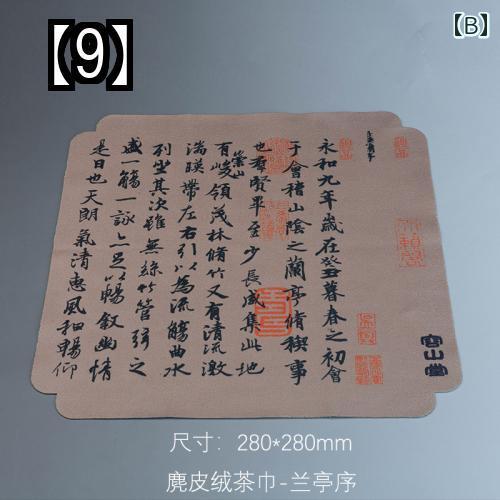 【9】
【B】
容山堂
永和九年歲在癸丑暮春之初會
于會稽山陰之蘭亭脩稧事
也群賢畢至少長咸集此地
崇山
有峻領茂林脩竹又有清流激
湍暎帶左右引以為流觴曲水
列坐其次雖無絲竹管弦之
盛一觴一詠亦足以暢叙幽情
是日也天朗氣清惠風和暢仰
尺寸：280*280mm
麂皮绒茶巾-兰亭序